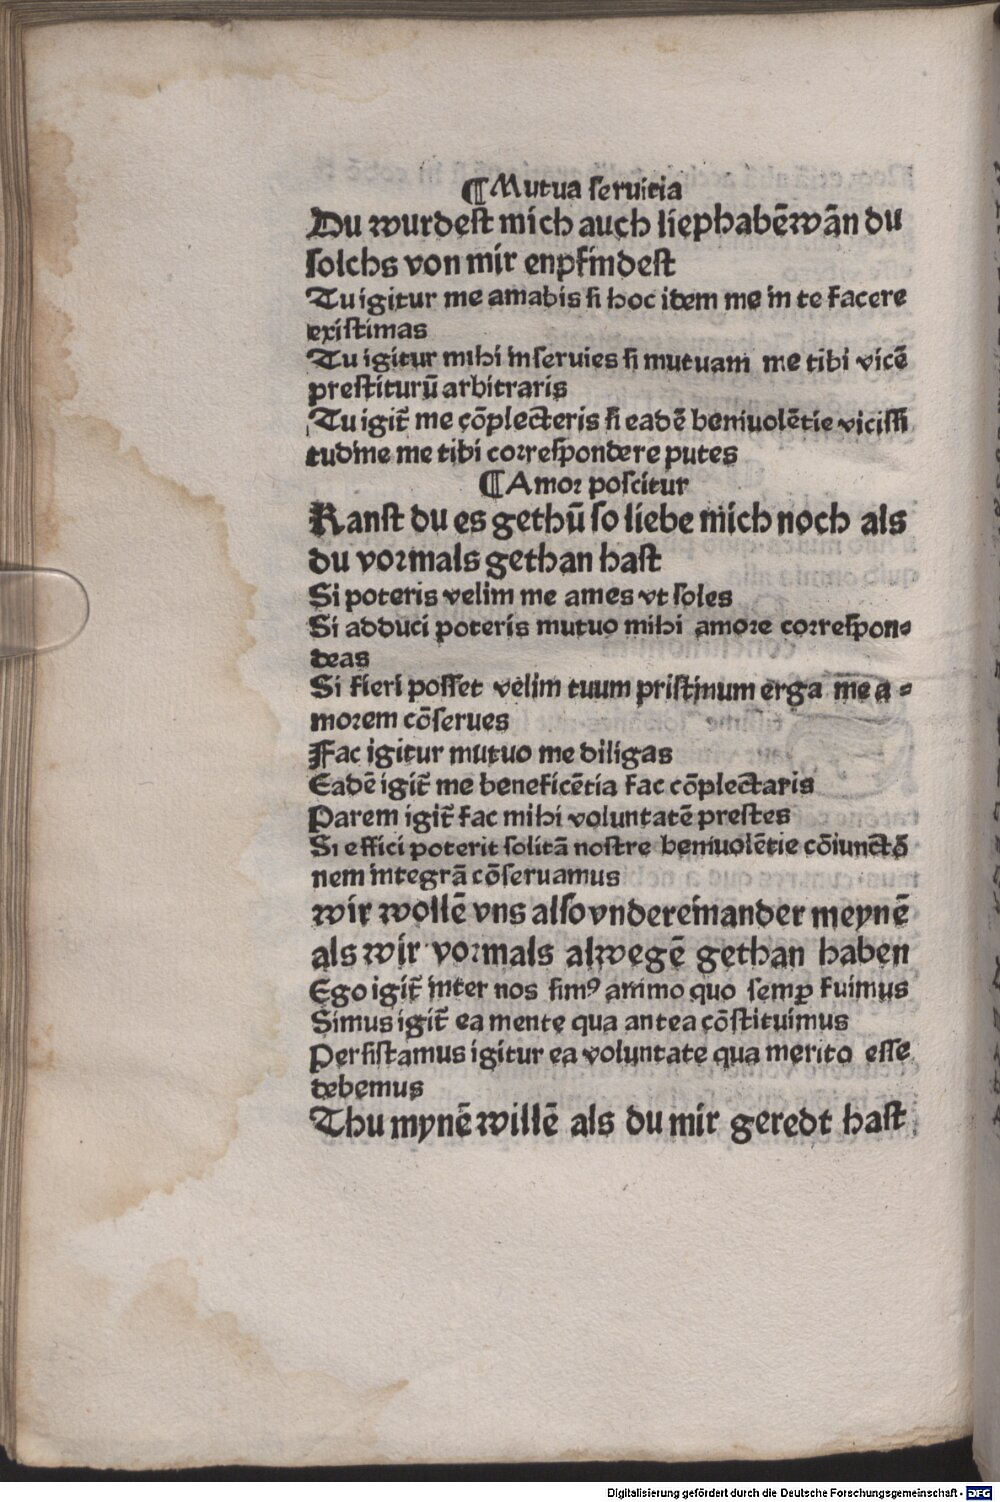 ¶Mutua seruitia
Du wurdest mich auch liephabē wān du
solchs von mir enpfindest
Tu igitur me amabis si hoc idem me in te facere
existimas
Tu igitur mihi inseruies si mutuam me tibi vicē
prestiturū arbitraris
Tu igit̄ me cōplecteris si eadē beniuolētie vicissi
tudine me tibi correspondere putes
¶Amor poscitur
Kanst du es gethū so liebe mich noch als
du vormals gethan hast
Si poteris velim me ames vt soles
Si adduci poteris mutuo mihi amore correspon⸗
deas
Si fieri posset velim tuum pristinum erga me a⸗
morem cōserues
Fac igitur mutuo me diligas
Eadē igit̄ me beneficētia fac cōplectaris
Parem igit̄ fac mihi voluntatē prestes
Si effici poterit solitā nostre beniuolētie cōiunctō
nem integrā cōseruamus
wir wollē vns also vndereinander meynē
als wir vormals alwegē gethan haben
Ego igit̄ inter nos simꝰ animo quo semꝑ fuimus
Simus igit̄ ea mente qua antea cōstituimus
Persistamus igitur ea voluntate qua merito esse
debemus
Thu mynē willē als du mir geredt hast
Digitalisierung gefördert durch die Deutsche Forschungsgemeinschaft - DFG